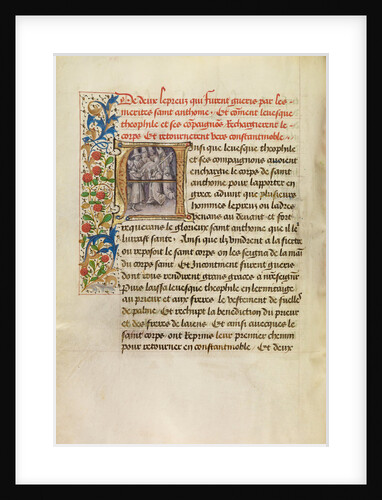 De deux lepreux qui furent gueris par les
merites saint anthoine. Et coment levesque
theophile et ses compaignons Rechargierent le
corps Et retournerent vers constantinoble
Ainsi que levesque theophile
et ses compaignons avoient
encharge le corps de saint
anthoine pour lapporter en
grece advint que plusieurs
hommes lepreux ou ladres
venans au devant et fort
requerans le glorieux saint anthoine que il
leur saute. Ainsi que ilz vindrent a la fierte
ou reposoit le saint corps on les seigna de la main
du corps saint Et Incontinent furent gueris
dont ilz rendirent grans graces a nreseignr
Puis laissa levesque theophile en lermitaige
au prieur et aux freres le vestement de fuelles
de palme. Et rechupt la benediction du prieur
et des freres de laiens Et ainsi avecques le
saint corps ont Reprins leur premier chemin
pour retourner en constantinoble. Et deux